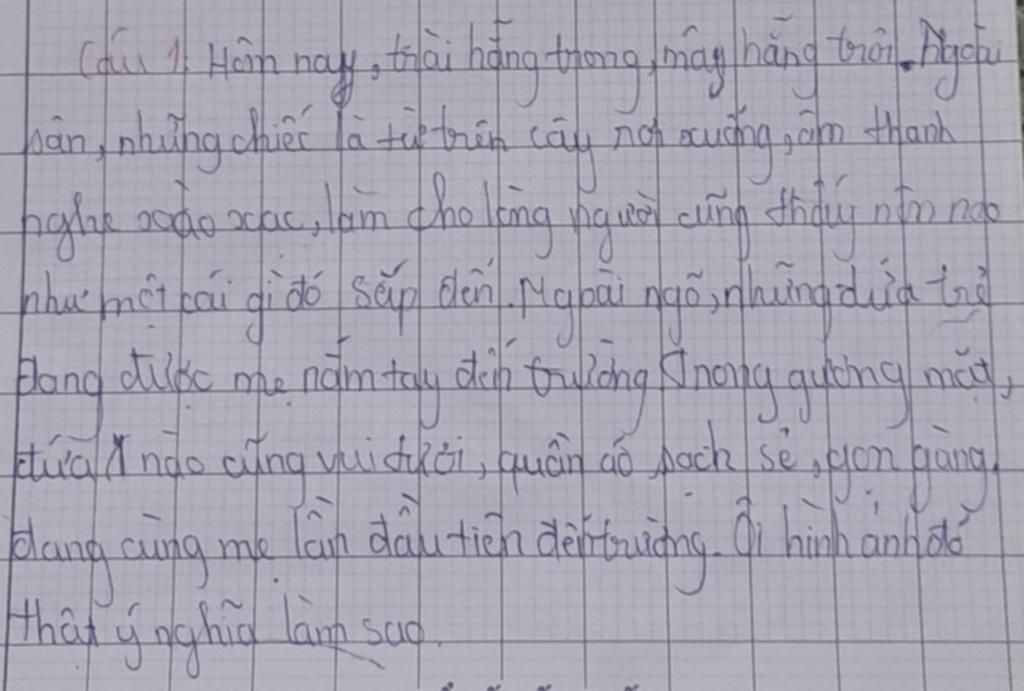 Câu 1. Hôm nay, trời hẵng trong, mây hẵng trôi. Ngoài
sân, những chiếc lá từ trên cây rơi xuống, âm thanh
nghe xào xạc, làm cho lòng người cũng thấy nôn nao
như một cái gì đó sắp đến. Ngoài ngõ, những đứa trẻ
đang được mẹ nắm tay đến trường. Trong gương mặt,
đứa nào cũng vui tươi, quần áo sạch sẽ, gọn gàng
đang cùng mẹ lần đầu tiên đến trường. Ôi hình ảnh đó
thật ý nghĩa làm sao.